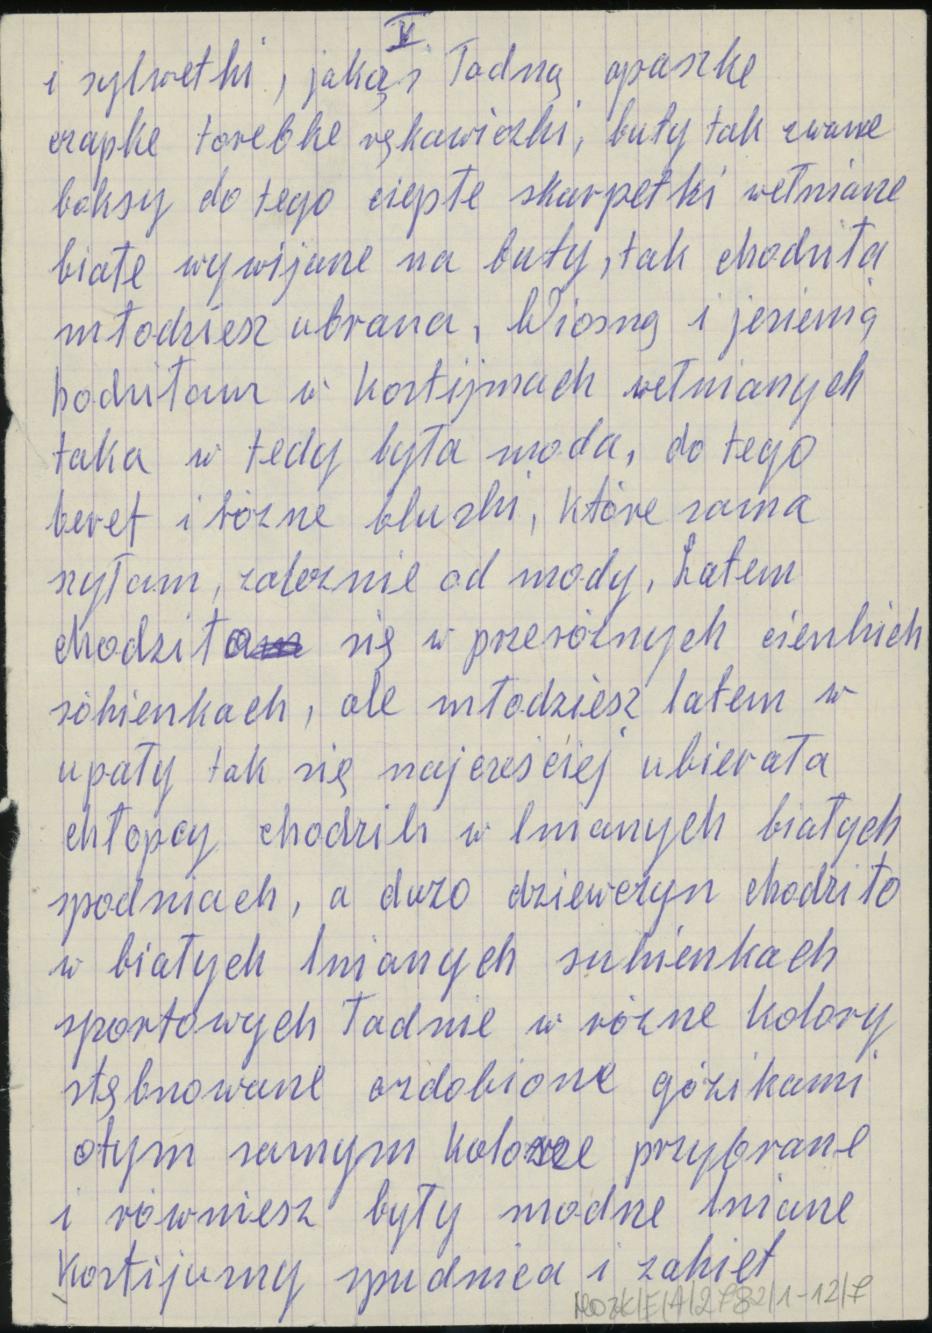 V
i sylwetki, jakąś ładną opaszkę
czapke torebke rękawiczki, buty tak zwane
boksy do tego ciepłe skarpetki wełniane
białe wywijane na buty, tak chodziła
młodziesz ubrana, Wiosną i jesienią
hodziłam w kostijmach wełnianych
taka w tedy była moda, do tego
beret i różne bluzki, które sama
szyłam, zależnie od mody, Latem
chodziło się w przeróżnych cienkich
sókienkach, ale młodziesz latem w
upały tak się najcześciej ubierała
chłopcy chodzili w lnianych białych
spodniach, a dużo dziewczyn chodziło
w białych lnianych sukienkach
sportowych ładnie w różne kolory
stębnowane ozdobione gózikami
otym samym kolorze przybrane
i równiesz były modne lniane
kostijumy spudnica i żakiet
MOZK/E/A/2782/1-12/7